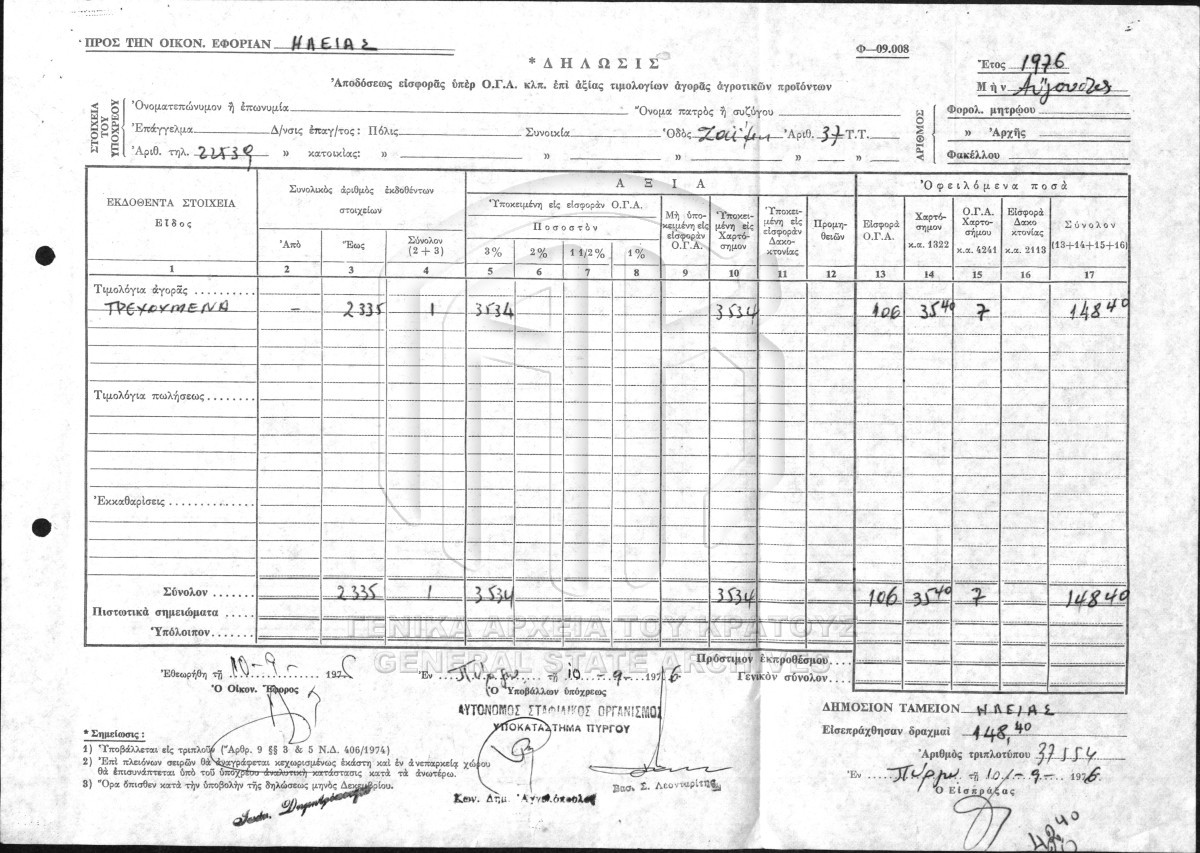 ΠΡΟΣ ΤΗΝ ΟΙΚΟΝ. ΕΦΟΡΙΑΝ ΗΛΕΙΑΣ
Φ—09.008
* ΔΗΛΩΣΙΣ
Ἀποδόσεως εἰσφορᾶς ὑπὲρ Ο.Γ.Α. κλπ. ἐπὶ ἀξίας τιμολογίων ἀγορᾶς ἀγροτικῶν προϊόντων
Ἔτος 1976
Μὴν Αὔγουστος
ΣΤΟΙΧΕΙΑ ΤΟΥ ΥΠΟΧΡΕΟΥ
Ὀνοματεπώνυμον ἢ ἐπωνυμία Ὄνομα πατρὸς ἢ συζύγου
Ἐπάγγελμα Δ/νσις ἐπαγ/τος: Πόλις Συνοικία Ὁδὸς Ζαΐμη Ἀριθ. 37 Τ.Τ.
Ἀριθ. τηλ. 22539 » κατοικίας: » » » » »
ΑΡΙΘΜΟΣ
Φορολ. μητρῴου
» Ἀρχῆς
Φακέλλου
ΕΚΔΟΘΕΝΤΑ ΣΤΟΙΧΕΙΑ
Εἶδος
Συνολικὸς ἀριθμὸς ἐκδοθέντων στοιχείων
Ἀπὸ Ἕως Σύνολον (2+3)
ΑΞΙΑ
Ὑποκειμένη εἰς εἰσφορὰν Ο.Γ.Α.
Ποσοστὸν
3% 2% 1 1/2% 1%
Μὴ ὑποκειμένη εἰς εἰσφορὰν Ο.Γ.Α.
Ὑποκειμένη εἰς Χαρτόσημον
Ὑποκειμένη εἰς εἰσφορὰν Δακοκτονίας
Προμηθειῶν
Ὀφειλόμενα ποσὰ
Εἰσφορὰ Ο.Γ.Α.
Χαρτόσημον κ.α. 1322
Ο.Γ.Α. Χαρτοσήμου κ.α. 4241
Εἰσφορὰ Δακοκτονίας κ.α. 2113
Σύνολον (13+14+15+16)
1 2 3 4 5 6 7 8 9 10 11 12 13 14 15 16 17
Τιμολόγια ἀγορᾶς
ΤΡΕΧΟΥΜΕΝΑ – 2335 1 3534 3534 106 35⁴⁰ 7 148⁴⁰
Τιμολόγια πωλήσεως
Ἐκκαθαρίσεις
Σύνολον 2335 1 3534 3534 106 35⁴⁰ 7 148⁴⁰
Πιστωτικὰ σημειώματα
Ὑπόλοιπον
ΓΕΝΙΚΑ ΑΡΧΕΙΑ ΤΟΥ ΚΡΑΤΟΥΣ
GENERAL STATE ARCHIVES
Πρόστιμον ἐκπροθέσμου
Γενικὸν σύνολον
Ἐθεωρήθη τῇ 10-9- 1976
Ὁ Οἰκον. Ἔφορος
Ἐν Πύργῳ τῇ 10-9- 1976
Ὁ Ὑποβάλλων ὑπόχρεως
ΑΥΤΟΝΟΜΟΣ ΣΤΑΦΙΔΙΚΟΣ ΟΡΓΑΝΙΣΜΟΣ
ΥΠΟΚΑΤΑΣΤΗΜΑ ΠΥΡΓΟΥ
Κων. Δημ. Ἀγγελόπουλος
Βασ. Σ. Λεονταρίτης
* Σημείωσις:
1) Ὑποβάλλεται εἰς τριπλοῦν (Ἄρθρ. 9 §§ 3 & 5 Ν.Δ. 406/1974)
2) Ἐπὶ πλειόνων σειρῶν θὰ ἀναγράφεται κεχωρισμένως ἑκάστη καὶ ἐν ἀνεπαρκείᾳ χώρου
θὰ ἐπισυνάπτεται ὑπὸ τοῦ ὑποχρέου ἀναλυτικὴ κατάστασις κατὰ τὰ ἀνωτέρω.
3) Ὅρα ὄπισθεν κατὰ τὴν ὑποβολὴν τῆς δηλώσεως μηνὸς Δεκεμβρίου.
ΔΗΜΟΣΙΟΝ ΤΑΜΕΙΟΝ ΗΛΕΙΑΣ
Εἰσεπράχθησαν δραχμαὶ 148,40
Ἀριθμὸς τριπλοτύπου 37554
Ἐν Πύργῳ τῇ 10-9- 1976
Ὁ Εἰσπράξας